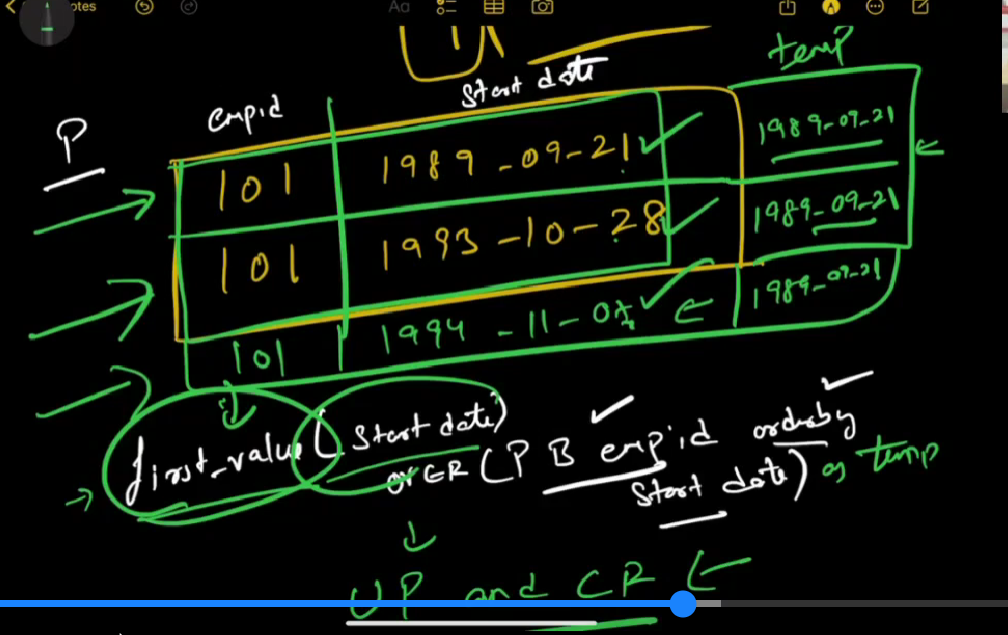 otes
Aa
temp
empid
start date
P
101
1989-09-21
1989-09-21
101
1993-10-28
1989-09-21
101
1994-11-07
1989-09-21
first_value(start date)
OVER (PB empid orderby
start date) as temp
UP and CR